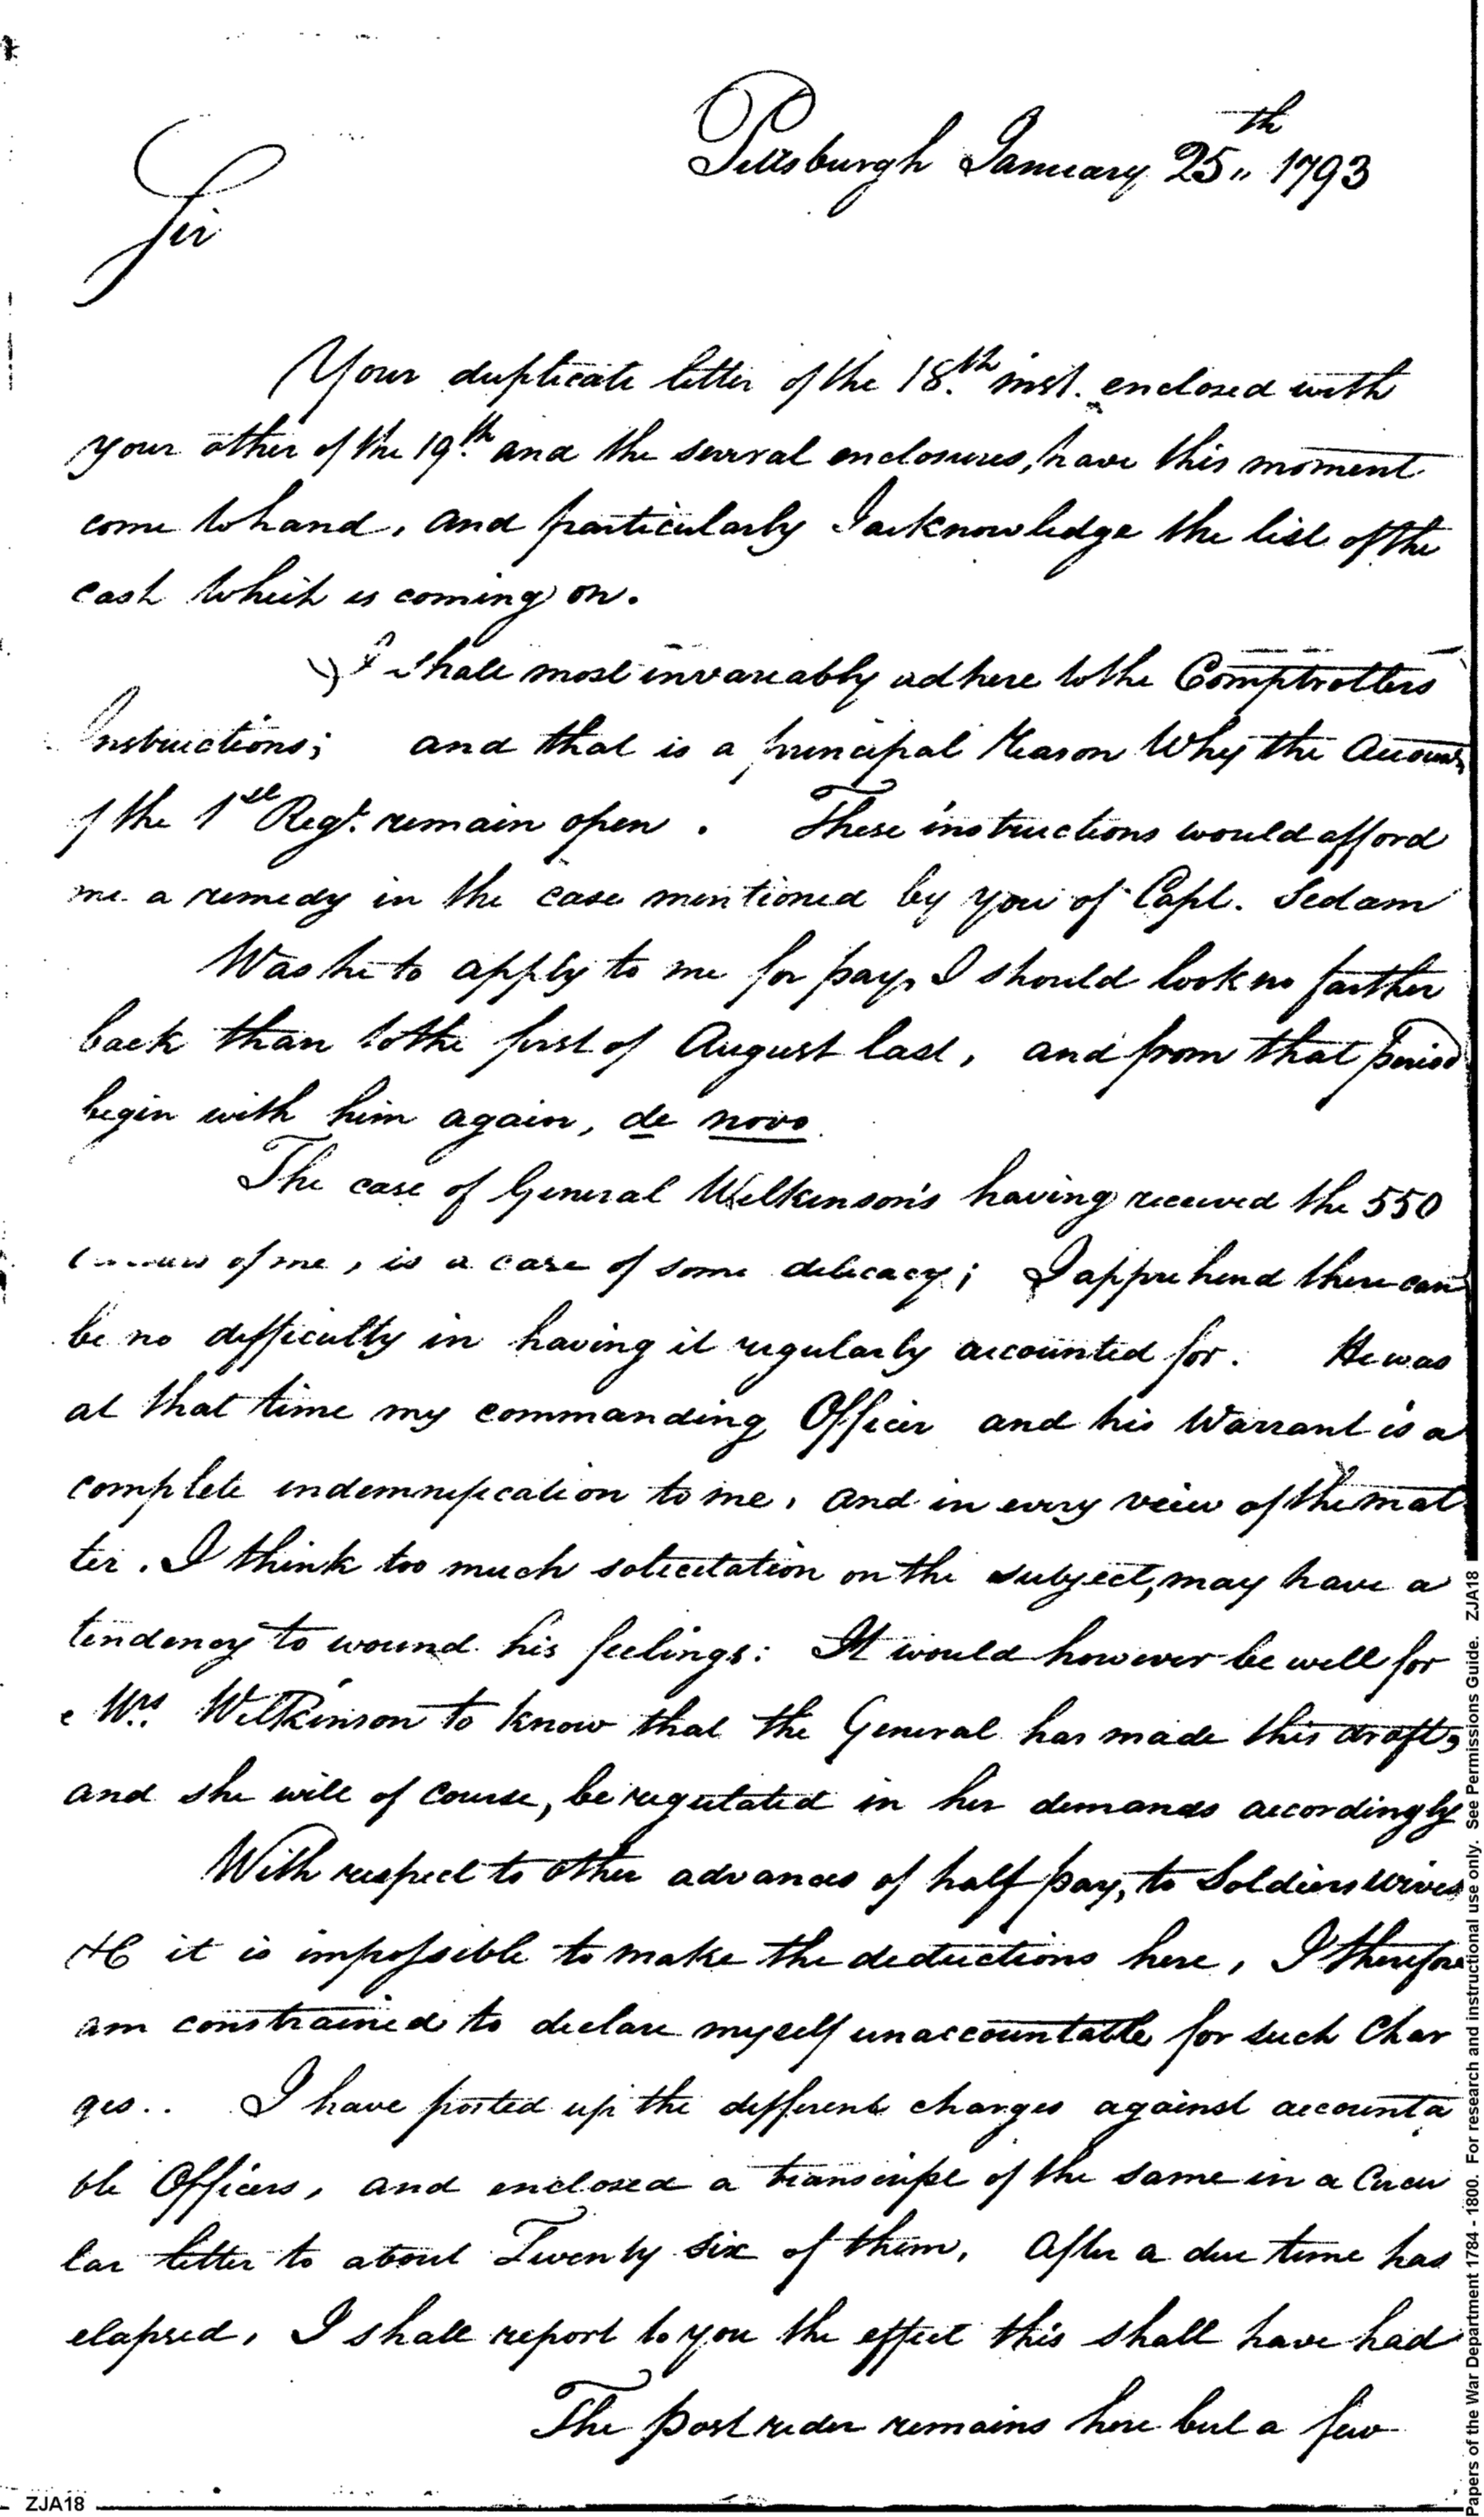 Pittsburgh January 25th 1793
Sir
Your duplicate letter of the 18th inst. enclosed with
your other of the 19th and the several enclosures, have this moment
come to hand, and particularly I acknowledge the list of the
cash which is coming on.
I shall most invareably adhere to the Comptrollers
Instructions; and that is a principal Reason Why the Accounts
of the 1st Regt. remain open. These instructions would afford
me a remedy in the case mentioned by you of Capt. Sedam
Was he to apply to me for pay, I should look no farther
back than to the first of August last, and from that period
begin with him again, de novo.
The case of General Wilkinson's having received the 550
of me, is a case of some delicacy; I apprehend there can
be no difficulty in having it regularly accounted for. He was
at that time my commanding Officer and his Warrant is a
complete indemnification to me, and in every veiw of the mat
ter. I think too much solicitation on the subject, may have a
tendency to wound his feelings: It would however be well for
Mrs. Wilkinson to know that the General has made this draft,
and she will of course, be regulated in her demands accordingly
With respect to other advances of half pay, to Soldiers wives
&C it is impossible to make the deductions here, I therefore
am constrained to declare myself unaccountable for such Char
ges.. I have posted up the different charges against accounta
ble Officers, and enclosed a transcipt of the same in a Circu
lar letter to about Twenty six of them. After a due time has
elapsed, I shall report to you the effect this shall have had
The post rider remains here but a few
ZJA18
Papers of the War Department 1784 - 1800. For research and instructional use only. See Permissions Guide. ZJA18